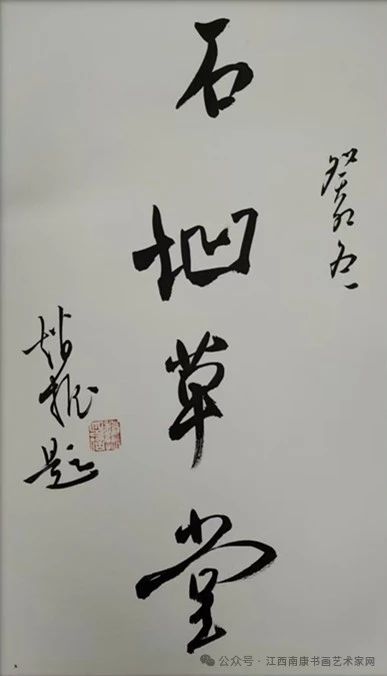 癸卯冬
石㘭草堂
题
公众号 · 江西南康书画艺术家网